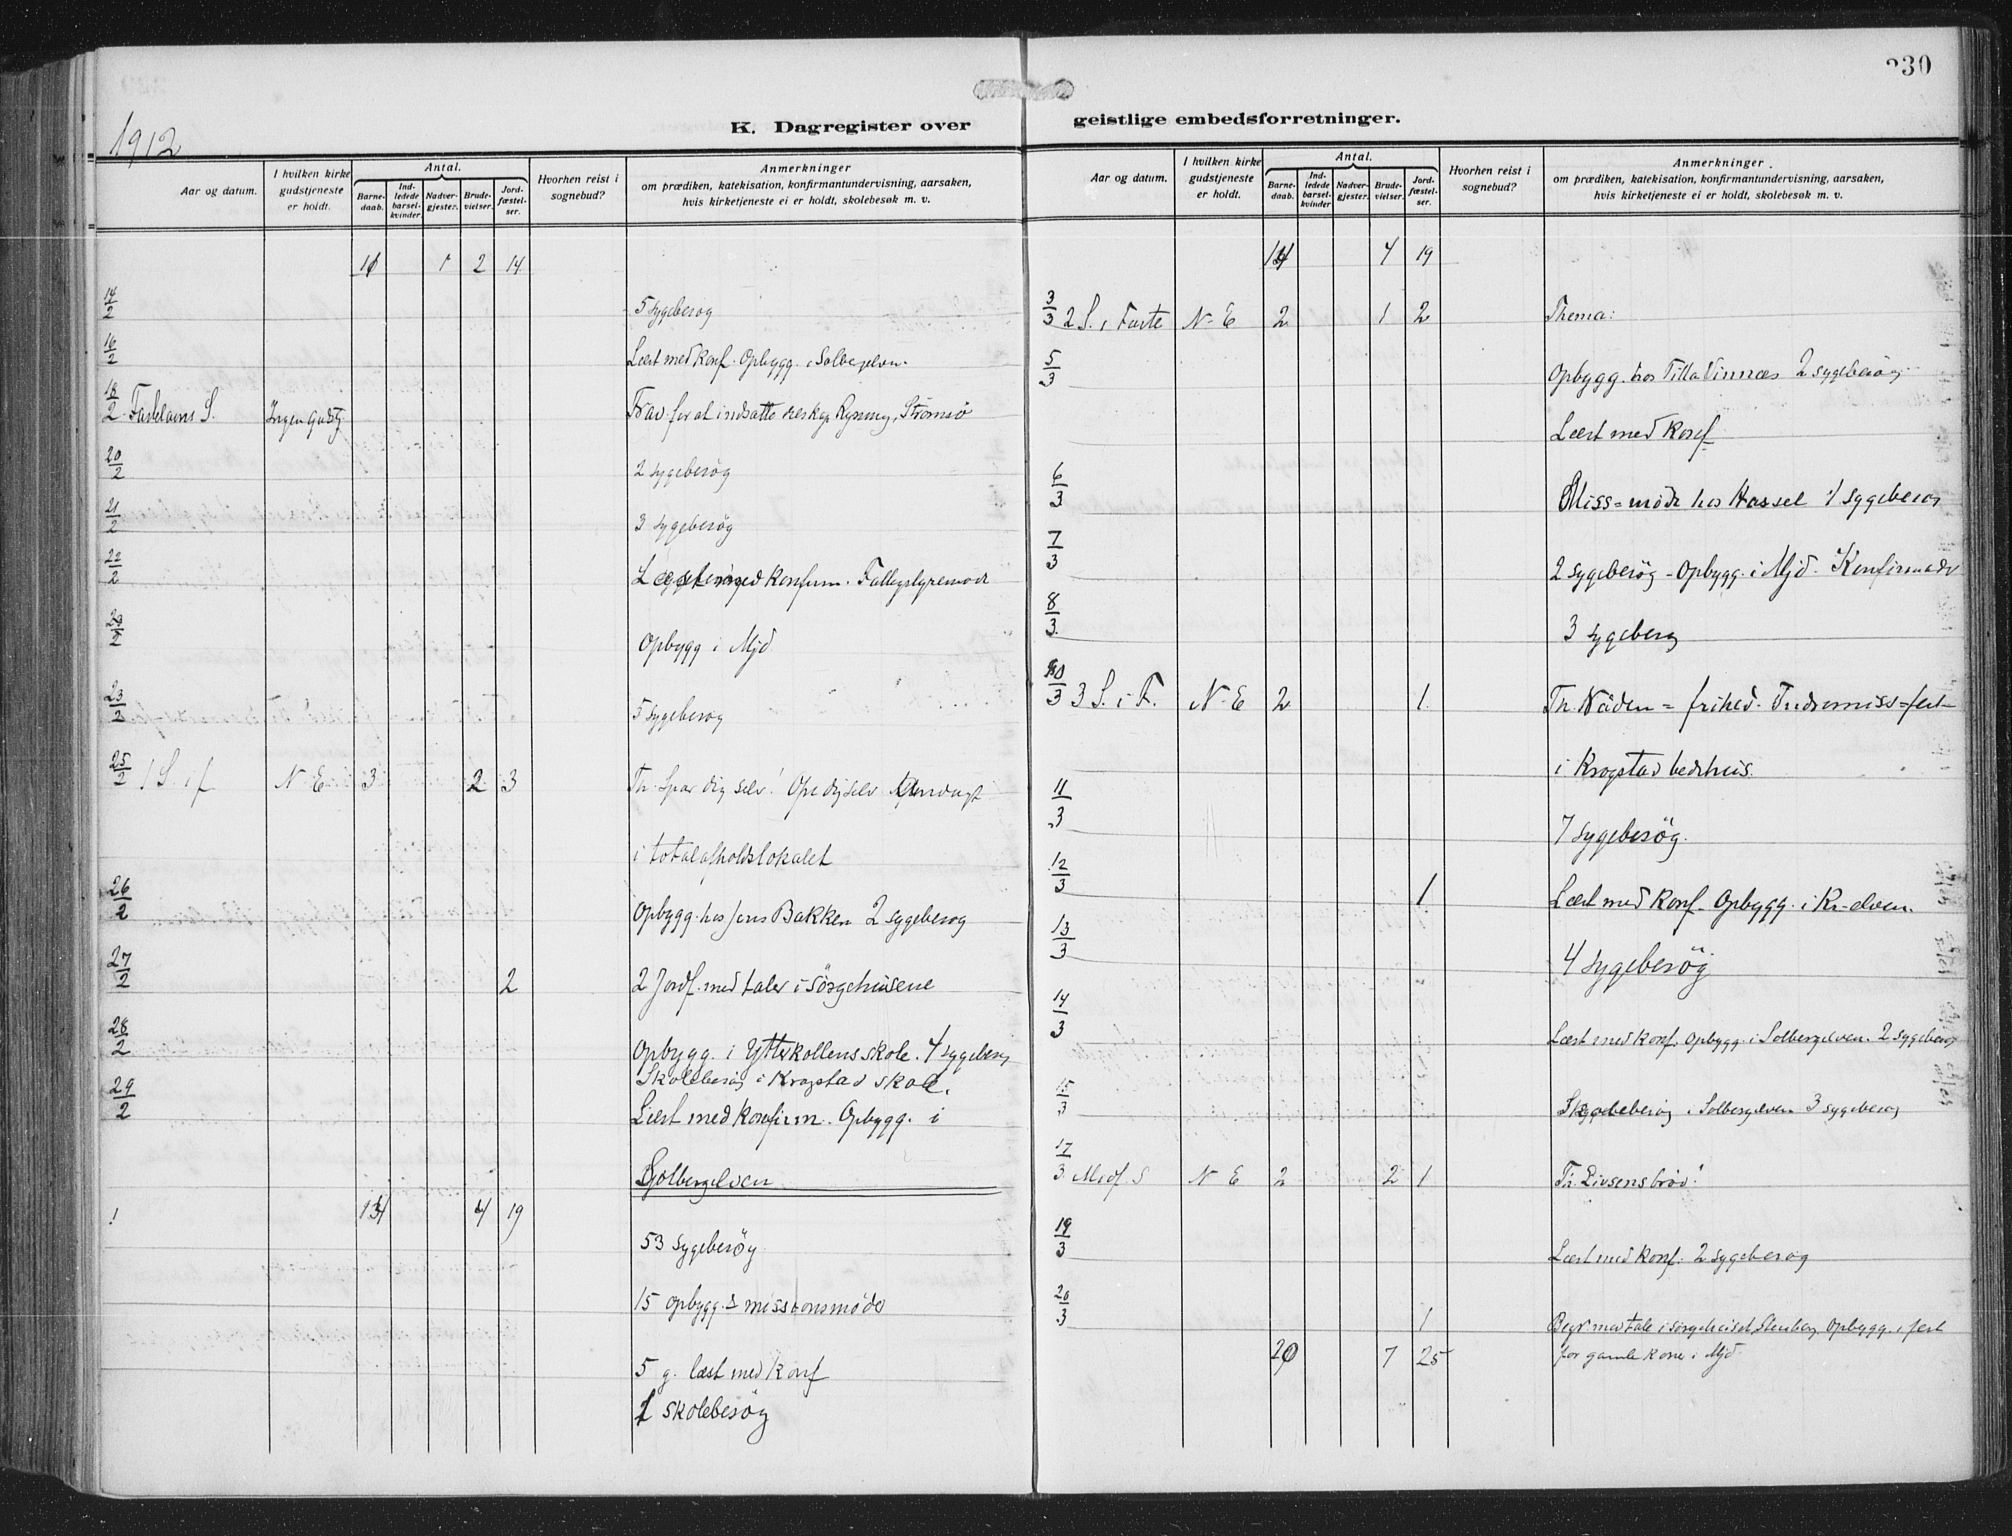 330
1912
K. Dagregister over
Aar og datum.
I hvilken kirke gudstjeneste er holdt.
Antal.
Barnedaab.
Indledede barselkvinder
Nadvergjester.
Brudevielser.
Jordfæstelser.
Hvorhen reist i sognebud?
Anmerkninger
om prædiken, katekisation, konfirmantundervisning, aarsaken,
hvis kirketjeneste ei er holdt, skolebesøk m. v.
1 2 14
14/2 5 sygebesøg
16/2 Læst med Konf. Opbygg. i Solbergelven.
18/2 Fastelavns S. Ingen Gudstj
20/2 2 sygebesøg
21/2 3 sygebesøg
22/2
Opbygg i Mjd
23/2 5 sygebesøg
25/2 1 S. i f N-E 3 2 3 Th. Spar dig selv!
i totalafholdslokalet
26/2 Opbygg. hos Jens Bakken 2 sygebesøg
27/2 2 2 Jordf. med taler i sörgehusene
28/2 Opbygg. i Ytterkollens skole. 4 sygebesøg
Skolebesøg i Krogstad skole.
29/2 Læst med konfirm. Opbygg. i
Solbergelven
4 19
53 sygebesøg
15 opbygg. & missionsmøde
5 g. læst med Konf
1 skolebesøg
geistlige embedsforretninger.
Aar og datum.
I hvilken kirke gudstjeneste er holdt.
Antal.
Barnedaab.
Indledede barselkvinder
Nadvergjester.
Brudevielser.
Jordfæstelser.
Hvorhen reist i sognebud?
Anmerkninger
om prædiken, katekisation, konfirmantundervisning, aarsaken,
hvis kirketjeneste ei er holdt, skolebesøk m. v.
14 4 19
3/3 2 S. i Faste N-E 2 1 2 Thema:
5/3 Opbygg. hos Tilla Vinnæs 2 sygebesøg
Læst med Konf
6/3 Miss=møde hos Hassel 1 sygebesøg
7/3 2 sygebesøg - Opbygg. i Mjd.
8/3 3 sygebesøg
10/3 3 S. i F. N-E 2 1 Th. Nåden = frihed. Indremiss=fest
i Krogstad bedehus.
11/3 7 sygebesøg.
12/3 1 Læst med konf. Opbygg. i Kr-elven.
13/3 4 sygebesøg
14/3 Læst med konf. Opbygg. i Solbergelven. 2 sygebesøg
15/3 Skolebesøg i Solbergelven 3 sygebesøg
17/3 Midf S N E 2 2 1 Th. Livsens brød!
19/3 Læst med Konf: 2 sygebesøg
20/3 1 Begr med tale i sørgehuset, Stenberg Opbygg. i fest
20 7 25 for gamle Koner i Mjd.